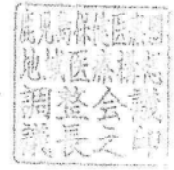 鹿児島保健医療圏
地域医療構想
調整会議
議長之印